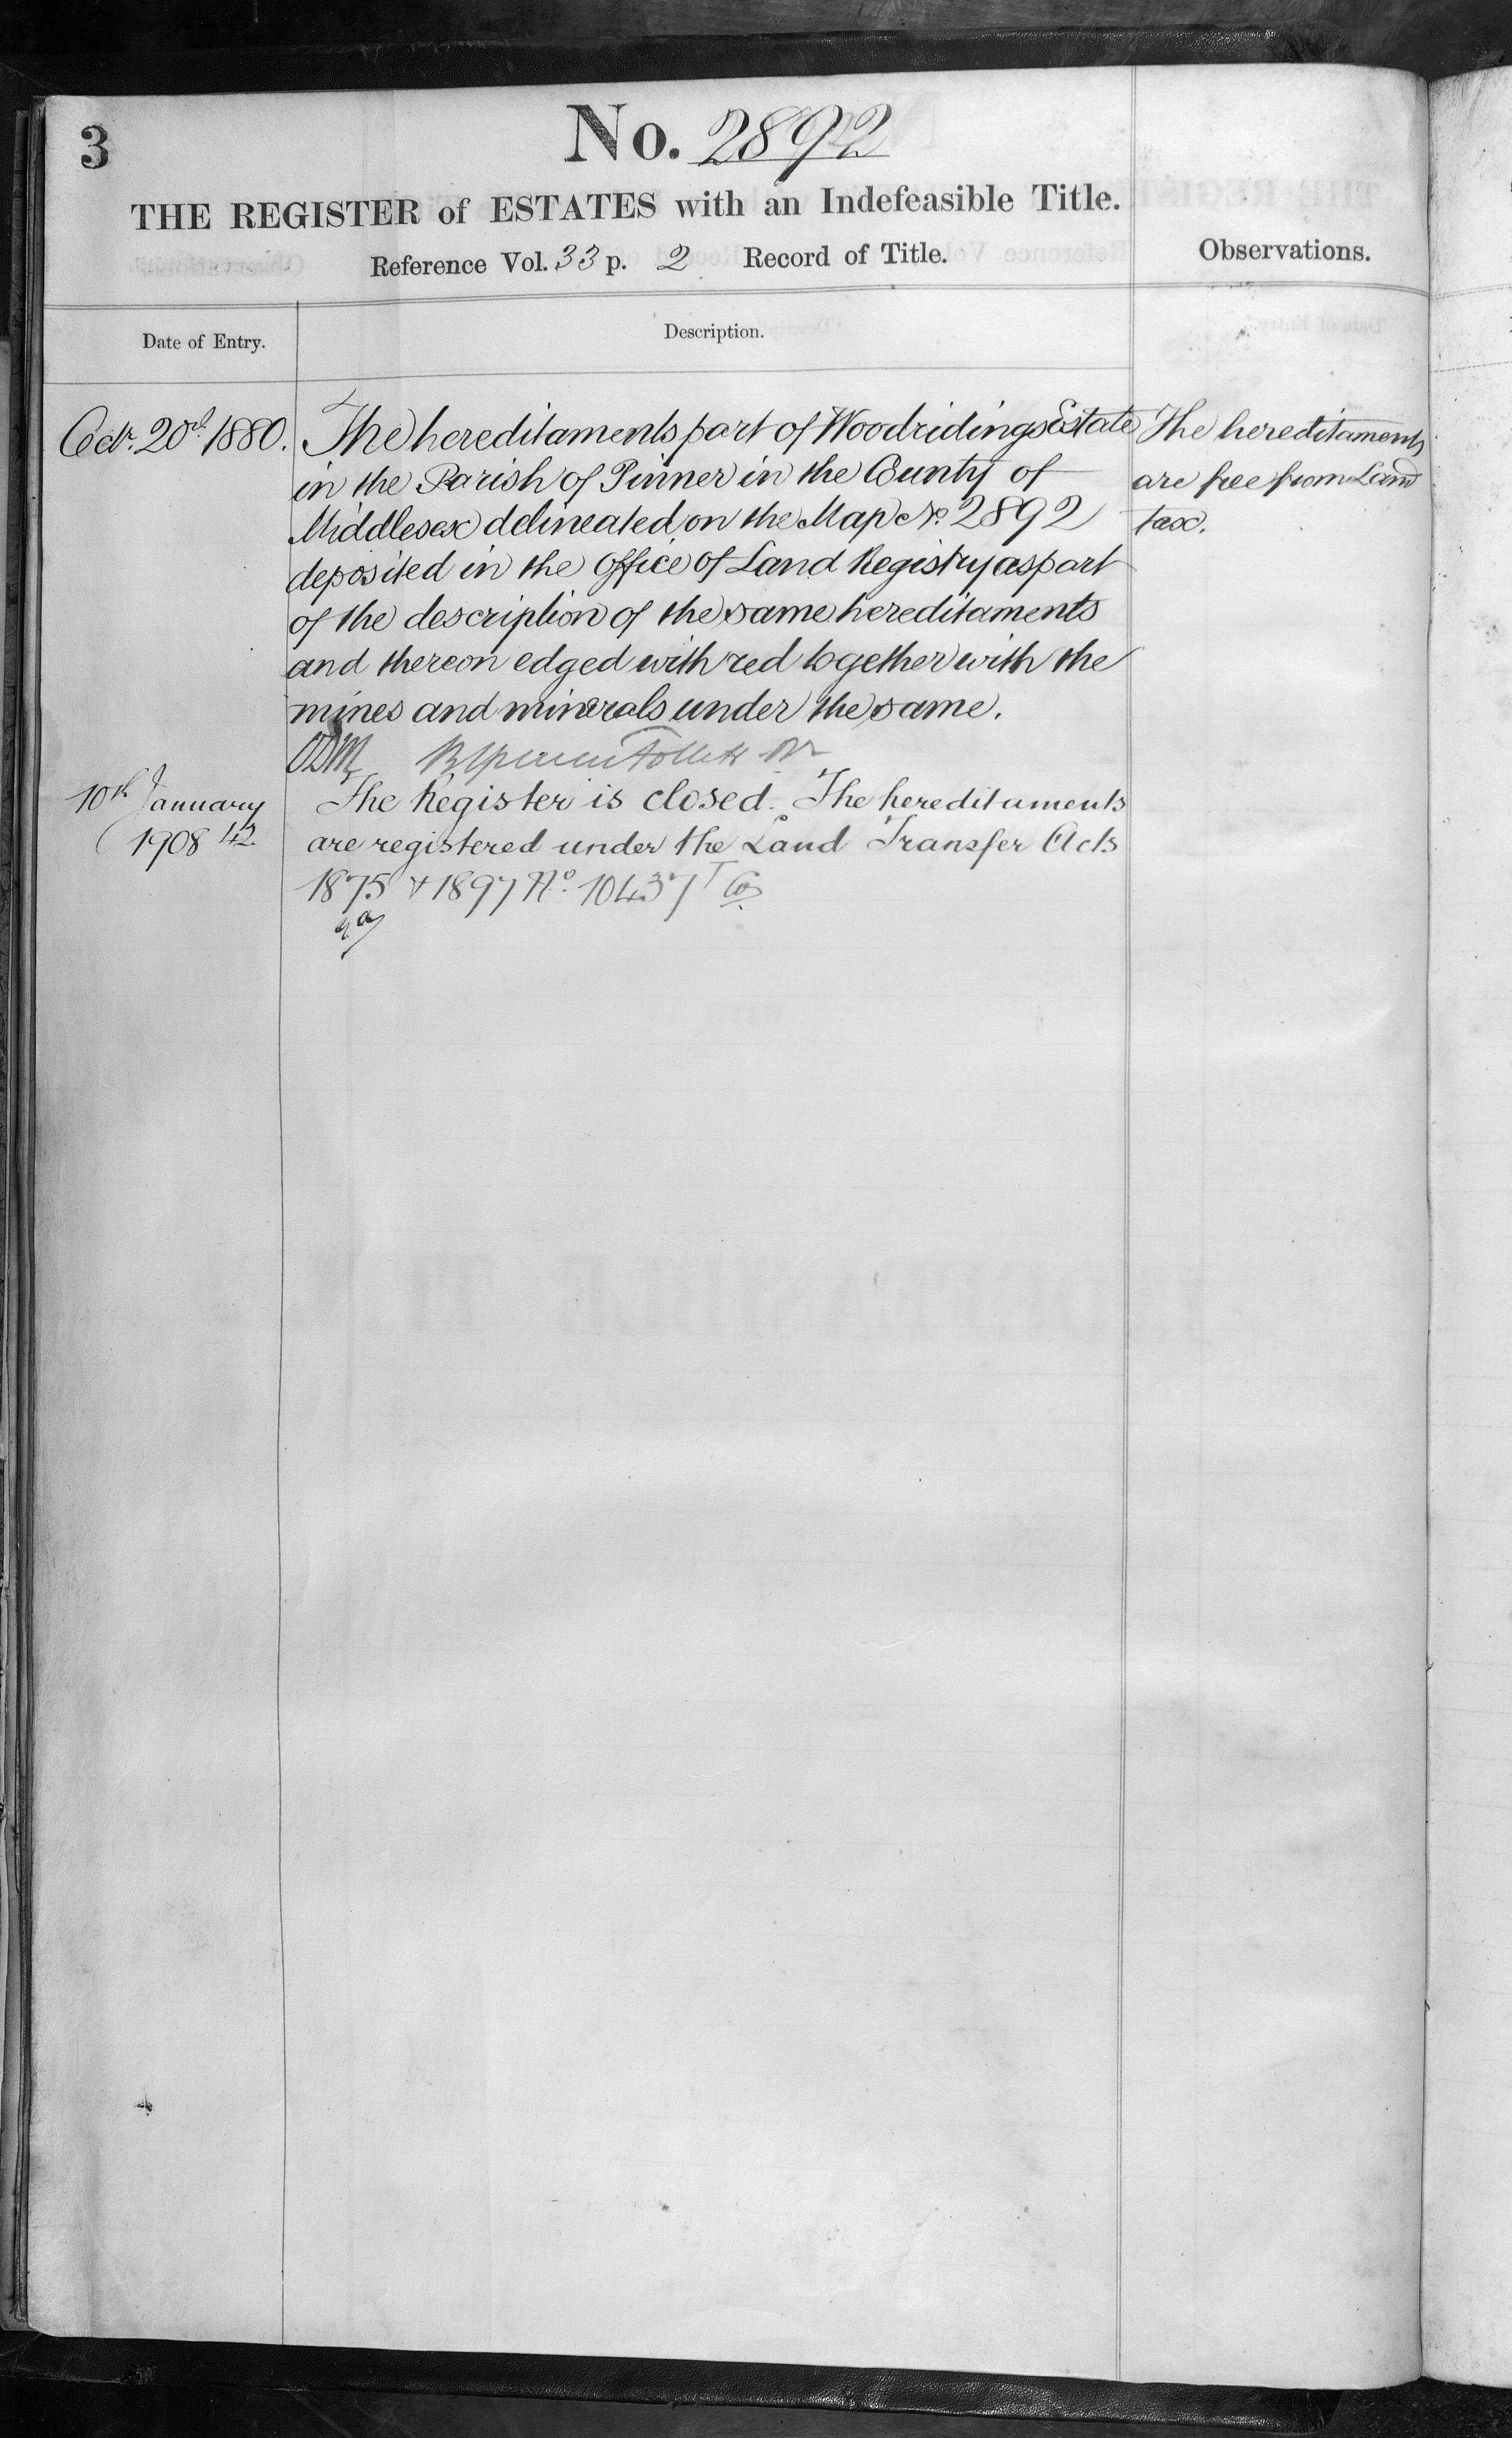 3
No. 2892
THE REGISTER of ESTATES with an Indefeasible Title.
Reference Vol. 33 p. 2 Record of Title.
Observations.
Date of Entry.
Description.
Octr. 20th 1880.
The hereditaments part of Woodridings Estate
in the Parish of Pinner in the County of
Middlesex delineated on the Map No. 2892
deposited in the office of Land Registry as part
of the description of the same hereditaments
and thereon edged with red together with the
mines and minerals under the same.
The hereditaments
are free from Land
tax.
10th January
1908
The Register is closed. The hereditaments
are registered under the Land Transfer Acts
1875 & 1897 No. 10437